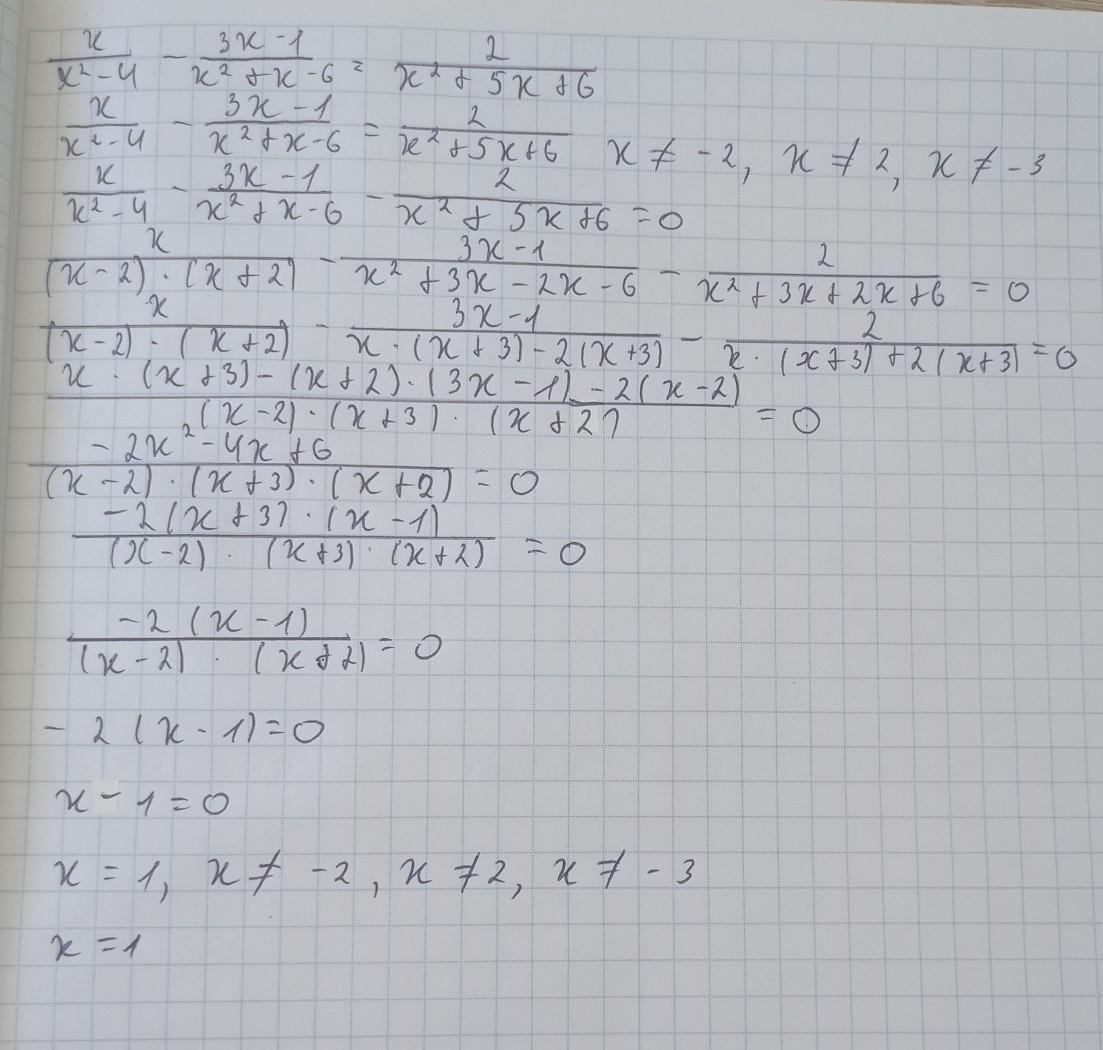 x/(x² - 4) - (3x - 1)/(x² + x - 6) = 2/(x² + 5x + 6)
x/(x² - 4) - (3x - 1)/(x² + x - 6) = 2/(x² + 5x + 6) x ≠ -2, x ≠ 2, x ≠ -3
x/(x² - 4) - (3x - 1)/(x² + x - 6) - 2/(x² + 5x + 6) = 0
x/((x - 2) · (x + 2)) - (3x - 1)/(x² + 3x - 2x - 6) - 2/(x² + 3x + 2x + 6) = 0
x/((x - 2) · (x + 2)) - (3x - 1)/(x · (x + 3) - 2(x + 3)) - 2/(x · (x + 3) + 2(x + 3)) = 0
(x · (x + 3) - (x + 2) · (3x - 1) - 2(x - 2))/((x - 2) · (x + 3) · (x + 2)) = 0
(-2x² - 4x + 6)/((x - 2) · (x + 3) · (x + 2)) = 0
(-2(x + 3) · (x - 1))/((x - 2) · (x + 3) · (x + 2)) = 0
(-2(x - 1))/((x - 2) · (x + 2)) = 0
-2(x - 1) = 0
x - 1 = 0
x = 1, x ≠ -2, x ≠ 2, x ≠ -3
x = 1